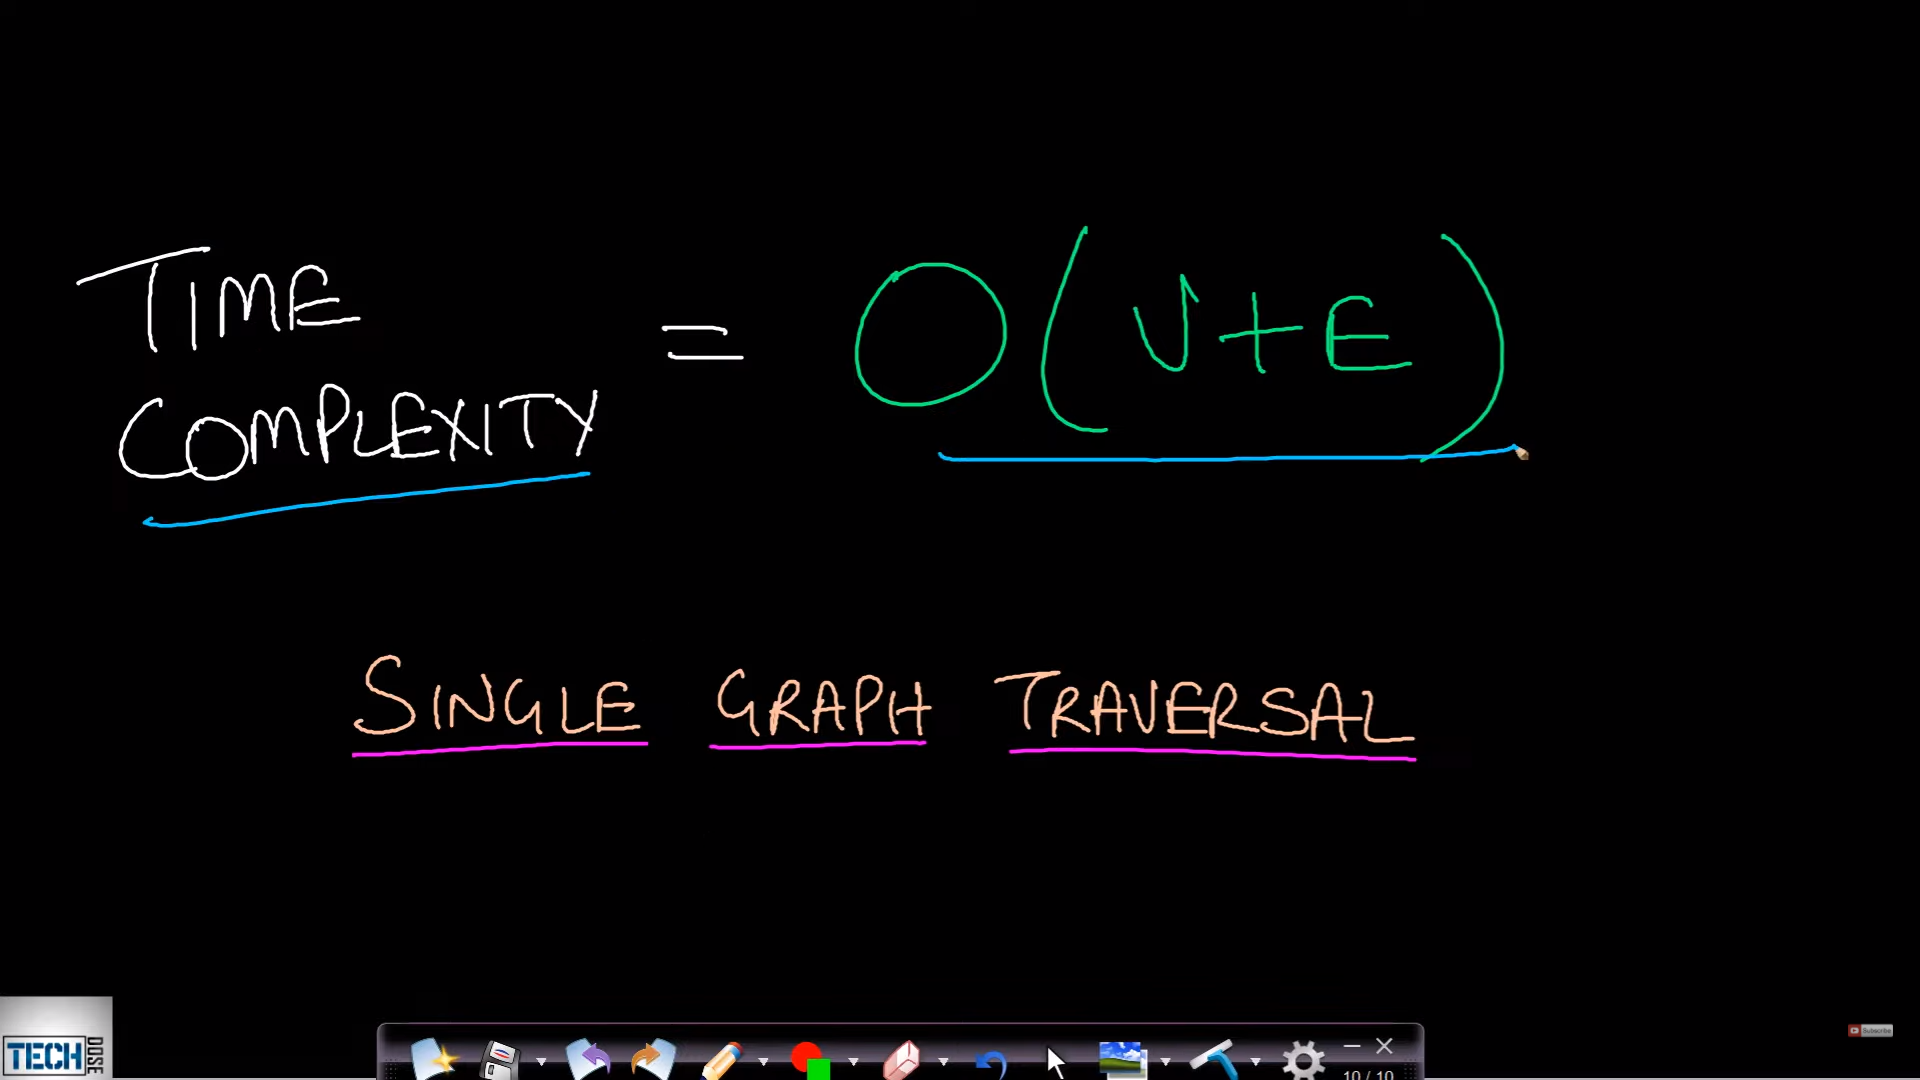 TIME
COMPLEXITY
= O(V+E)
SINGLE GRAPH TRAVERSAL
TECH DOSE
Subscribe
10 / 10